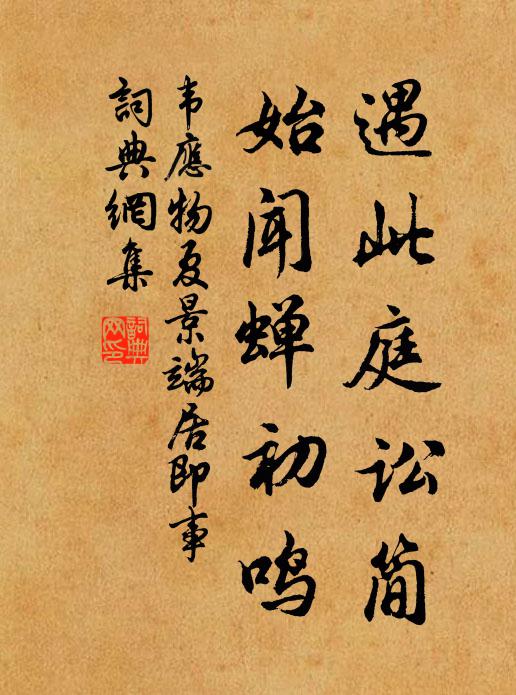 遇此庭讼简
始闻蝉初鸣
韦應物夏景端居即事
詞典網集
詞典网印